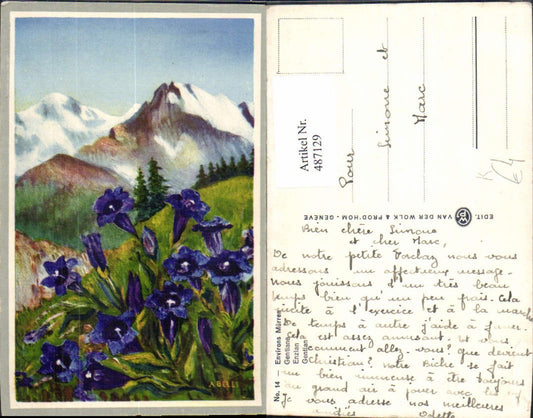 A. BELLI
Artikel Nr.
487129
Pour
Simone et
Marc
EDIT. VAN DER WOLK & PROD'HOM - GENÈVE
No. 14
Environs Mürren
Gentiane
Enzian
Gentian
Bien chère Simone
et cher Marc,
De notre petite nous vous
adressons un affectueux message.
Nous jouissons d'un très beau
temps bien qu'un peu frais. Cela
incite à l'exercice et à la marche
De temps à autre j'aide à
cela est assez amusant. Et vous,
comment allez-vous? que devient
Christian? notre Biche se fait
un bien immense à être toujours
au grand air à jouer avec les
Je vous adresse nos meilleures
amitiés Odette